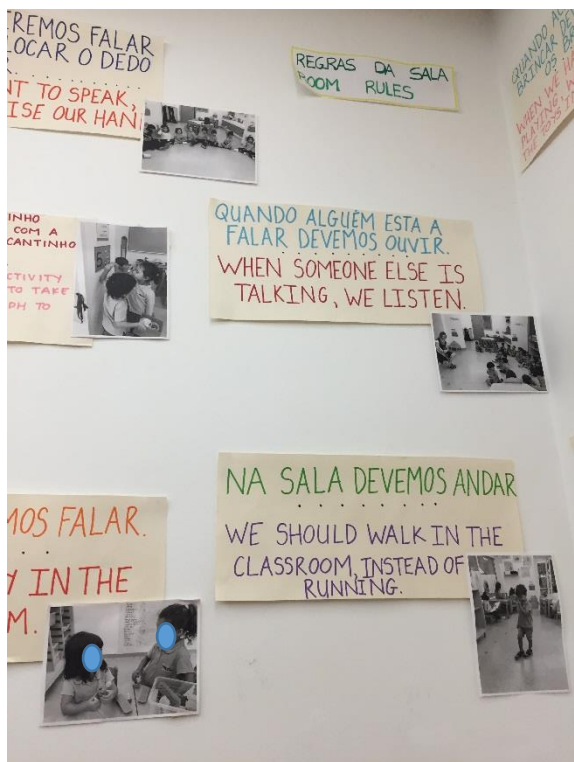 REMOS FALAR
LOCAR O DEDO
NT TO SPEAK,
ISE OUR HAN
REGRAS DA SALA
ROOM RULES
QUANDO AL
BRINCAR DE
OS BR
WHEN WE HA
PLAYING W
THE TOYS T
INHO
COM A
CANTINHO
CTIVITY
TO TAKE
DH TO
QUANDO ALGUÉM ESTA A
FALAR DEVEMOS OUVIR.
WHEN SOMEONE ELSE IS
TALKING, WE LISTEN.
MOS FALAR.
Y IN THE
M.
NA SALA DEVEMOS ANDAR
WE SHOULD WALK IN THE
CLASSROOM, INSTEAD OF
RUNNING.